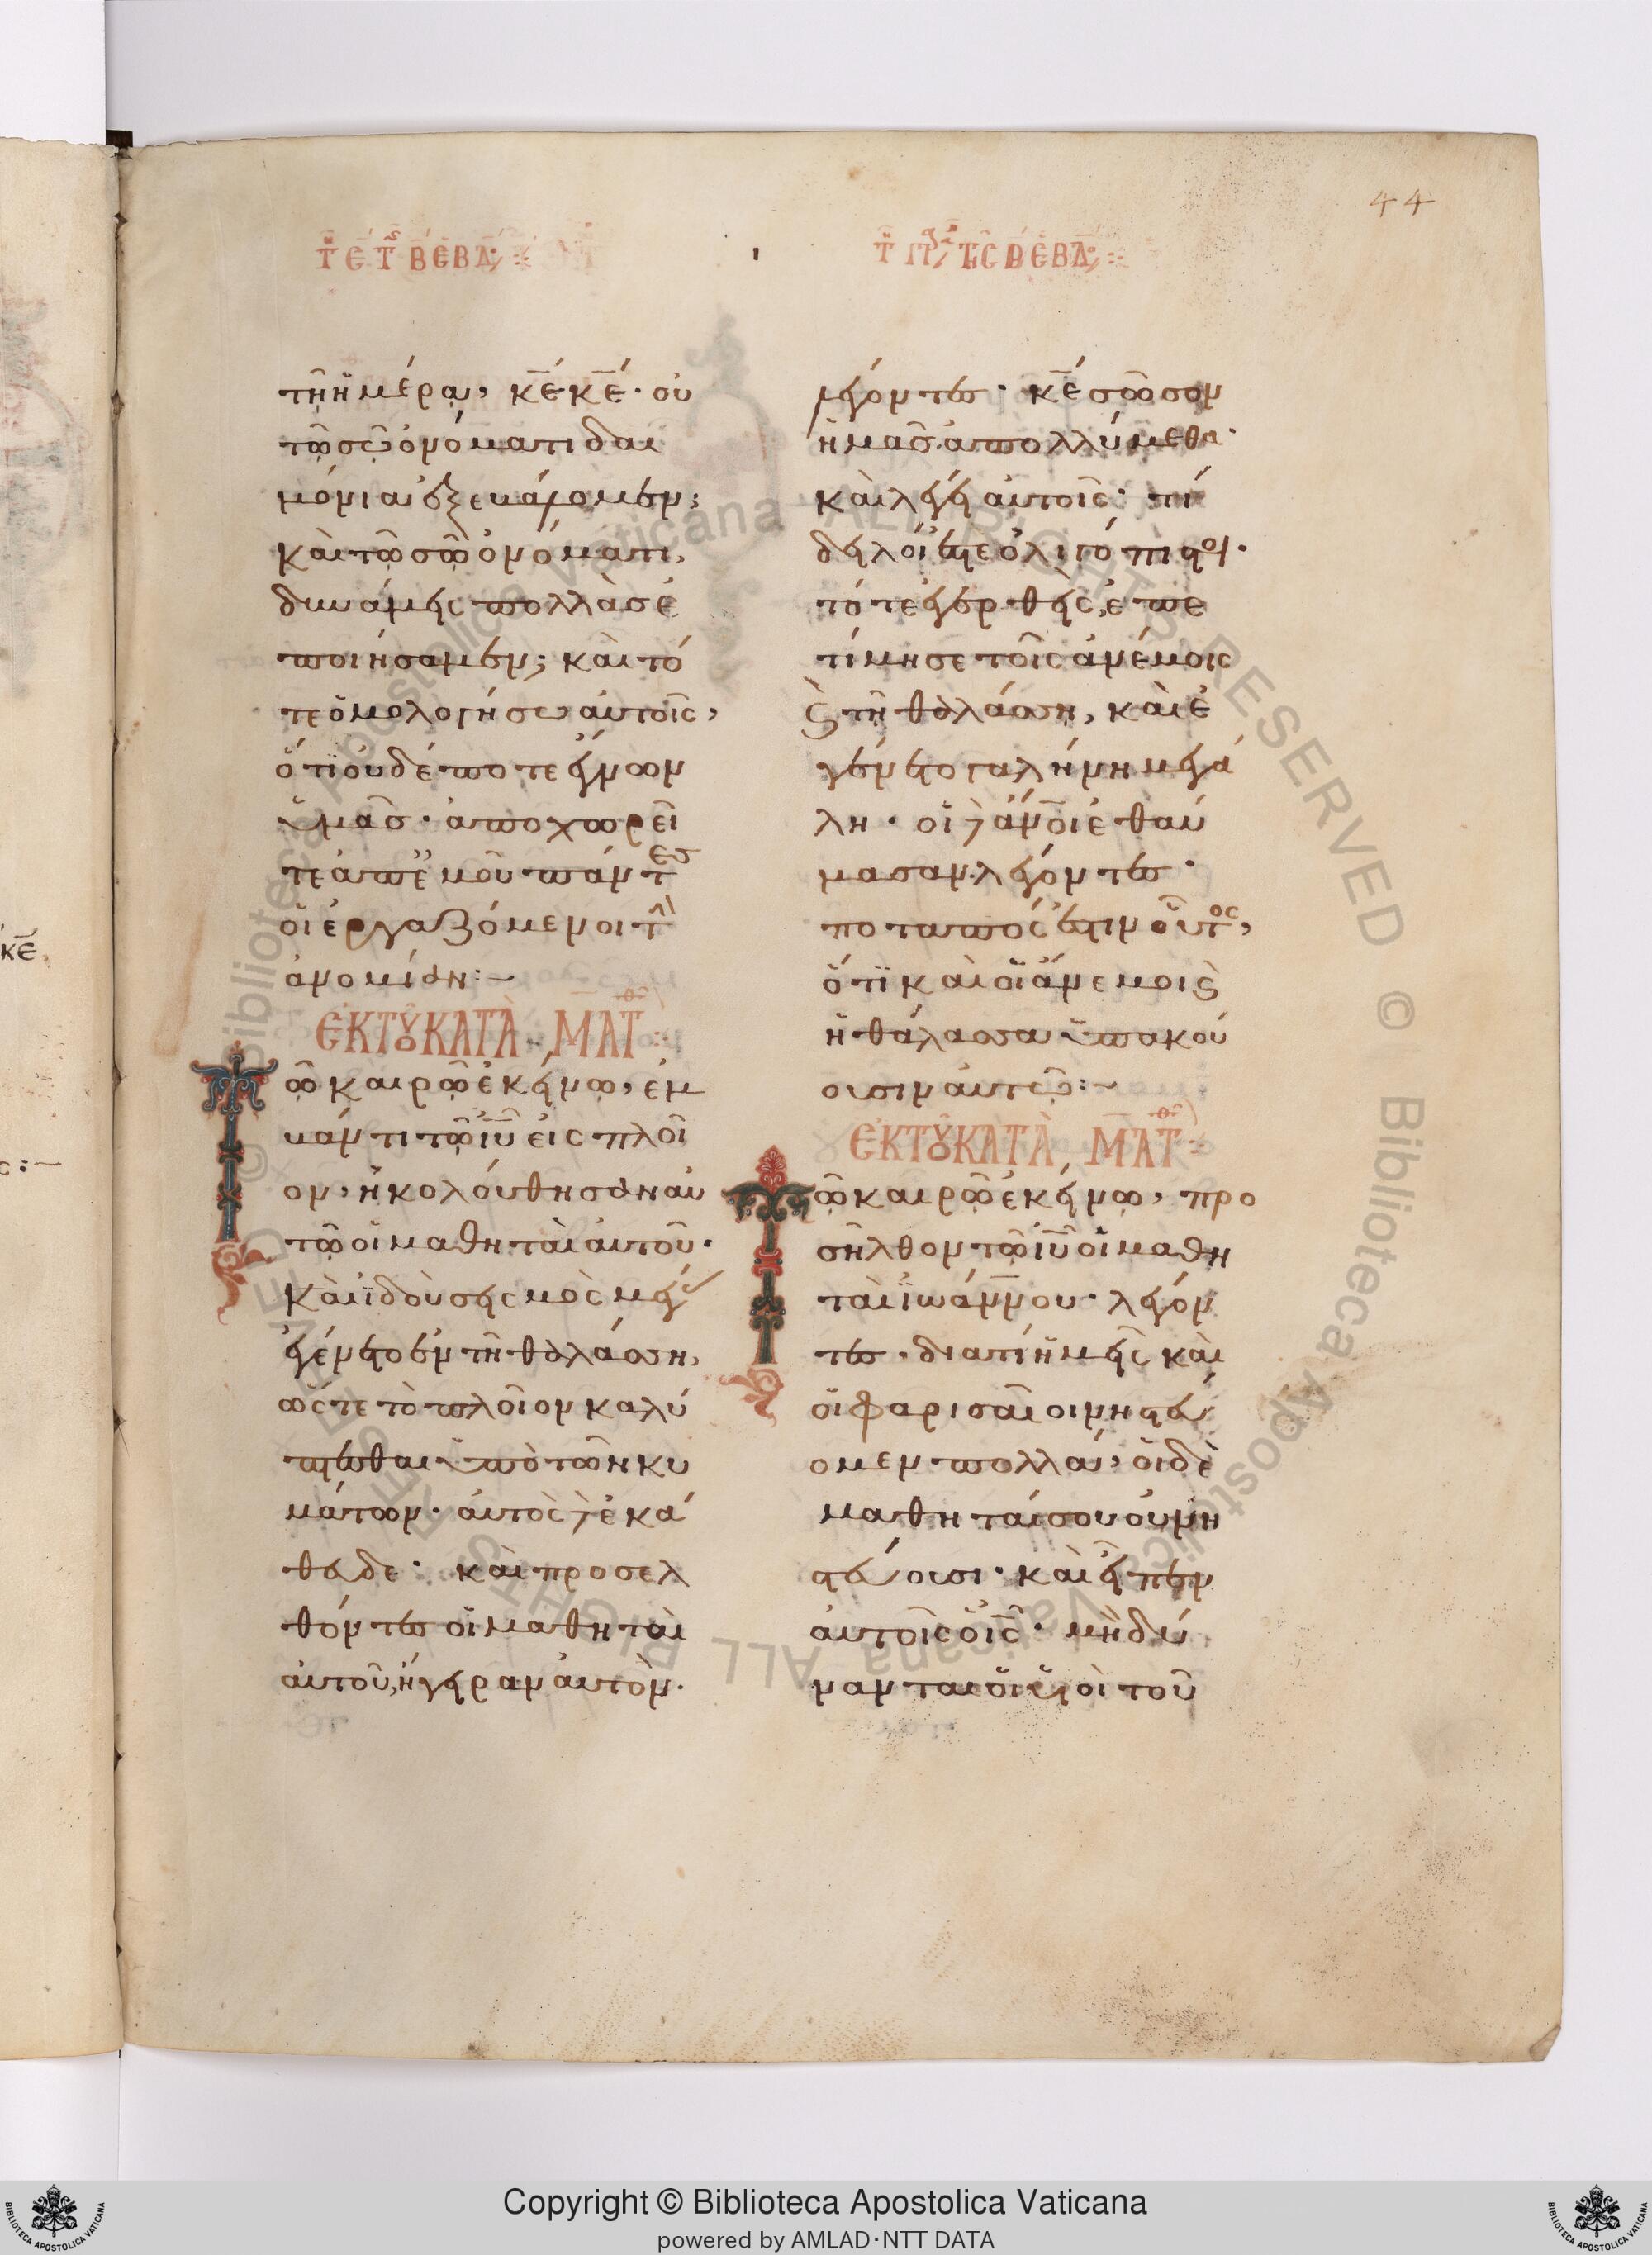 44
τῆ ἡμέρα, κ̅ε̅ κ̅ε̅· οὐ
τῶ σῶ ὀνόματι δαι
μόνια ἐξεβάλομεν;
καὶ τῶ σῶ ὀνόματι,
δυνάμεις πολλὰς ἐ
ποιήσαμεν; καὶ τό
τε ὁμολογήσω αὐτοῖς,
ὅτι οὐδέποτε ἔγνων
ὑμᾶς· ἀποχωρεῖ
τε ἀπ' ἐμοῦ πάντες
οἱ ἐργαζόμενοι τὴν
ἀνομίαν:~
ἘΚ ΤΟΥ ΚΑΤᾺ ΜΑΤΘ
Τῶ καιρῶ ἐκείνω, ἐμ
βάντι τῶ ι̅υ̅ εἰς πλοῖ
ον, ἠκολούθησαν αὐ
τῶ οἱ μαθηταὶ αὐτοῦ·
καὶ ἰδοὺ σεισμὸς μέγας
ἐγένετο ἐν τῆ θαλάσση,
ὥστε τὸ πλοῖον καλύ
πτεσθαι ὑπὸ τῶν κυ
μάτων· αὐτὸς δὲ ἐκά
θευδε· καὶ προσελ
θόντες οἱ μαθηταὶ
αὐτοῦ, ἤγειραν αὐτὸν·
λέγοντες· κ̅ε̅ σῶσον
ἡμᾶς· ἀπολλύμεθα·
καὶ λέγει αὐτοῖς· τί
δειλοί ἐστε ὀλιγόπιστοι·
τότε ἐγερθεὶς, ἐπε
τίμησε τοῖς ἀνέμοις
καὶ τῆ θαλάσση, καὶ ἐ
γένετο γαλήνη μεγά
λη· οἱ δὲ ἄνο̅ι̅ ἐθαύ
μασαν λέγοντες·
ποταπός ἐστιν οὗτος,
ὅτι καὶ οἱ ἄνεμοι καὶ
ἡ θάλασσα ὑπακού
ουσιν αὐτῶ:~
ἘΚ ΤΟΥ ΚΑΤᾺ ΜΑΤΘ
Τῶ καιρῶ ἐκείνω, προ
σῆλθον τῶ ι̅υ̅ οἱ μαθη
ταὶ ἰωάννου· λέγον
τες· διατί ἡμεῖς καὶ
οἱ φαρισαῖοι νηστεύ
ομεν πολλά, οἱ δὲ
μαθηταί σου οὐ νη
στεύουσι· καὶ εἶπεν
αὐτοῖς ὁ ι̅ς̅· μὴ δύ
νανται οἱ υἱοὶ τοῦ
κ̅ε̅,
Copyright © Biblioteca Apostolica Vaticana
powered by AMLAD·NTT DATA